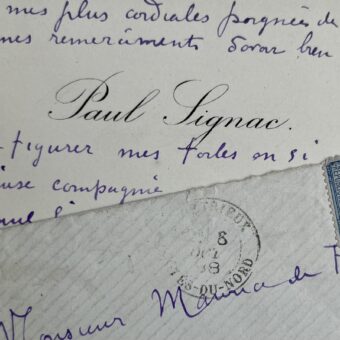 mes plus cordiales poignées de
mes remerciments d'avoir bien
Paul Signac.
figurer mes toiles en si
euse compagnie
Paul Si
RIEUX
6
OCT
88
TES-DU-NORD
Monsieur Maurice de F